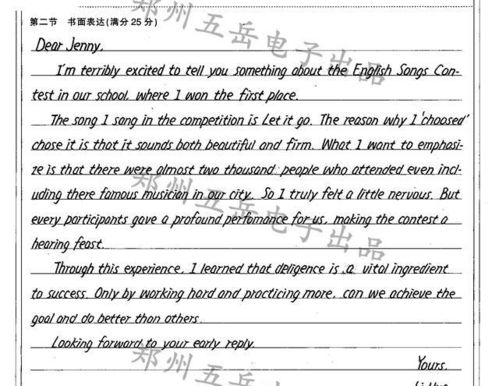 第二节 书面表达(满分25分)
郑州五岳电子出品
Dear Jenny,
I'm terribly excited to tell you something about the English Songs Con-
test in our school, where I won the first place.
The song I sang in the competition is Let it go. The reason why I 'choosed'
chose it is that it sounds both beautiful and firm. What I want to emphasi-
ze is that there were almost two thousand people who attended even incl-
uding there famous musician in our city. So I truly felt a little nervous. But
郑州五岳电子出品
every participants gave a profound perfomance for us, making the contest a
hearing feast.
Through this experience, I learned that deligence is a vital ingredient
to success. Only by working hard and practicing more, can we achieve the
goal and do better than others.
Looking forward to your early reply.
郑州五岳电子
Yours,